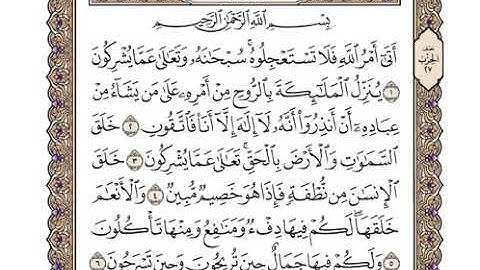 بِسْمِ ٱللَّهِ ٱلرَّحْمَٰنِ ٱلرَّحِيمِ
أَتَىٰٓ أَمْرُ ٱللَّهِ فَلَا تَسْتَعْجِلُوهُۚ سُبْحَٰنَهُۥ وَتَعَٰلَىٰ عَمَّا يُشْرِكُونَ
١ يُنَزِّلُ ٱلْمَلَٰٓئِكَةَ بِٱلرُّوحِ مِنْ أَمْرِهِۦ عَلَىٰ مَن يَشَآءُ مِنْ
عِبَادِهِۦٓ أَنْ أَنذِرُوٓا۟ أَنَّهُۥ لَآ إِلَٰهَ إِلَّآ أَنَا۠ فَٱتَّقُونِ ٢ خَلَقَ
ٱلسَّمَٰوَٰتِ وَٱلْأَرْضَ بِٱلْحَقِّۚ تَعَٰلَىٰ عَمَّا يُشْرِكُونَ ٣ خَلَقَ
ٱلْإِنسَٰنَ مِن نُّطْفَةٍ فَإِذَا هُوَ خَصِيمٌ مُّبِينٌ ٤ وَٱلْأَنْعَٰمَ
خَلَقَهَاۗ لَكُمْ فِيهَا دِفْءٌ وَمَنَٰفِعُ وَمِنْهَا تَأْكُلُونَ
٥ وَلَكُمْ فِيهَا جَمَالٌ حِينَ تُرِيحُونَ وَحِينَ تَسْرَحُونَ ٦
نصف
الحزب
٢٧